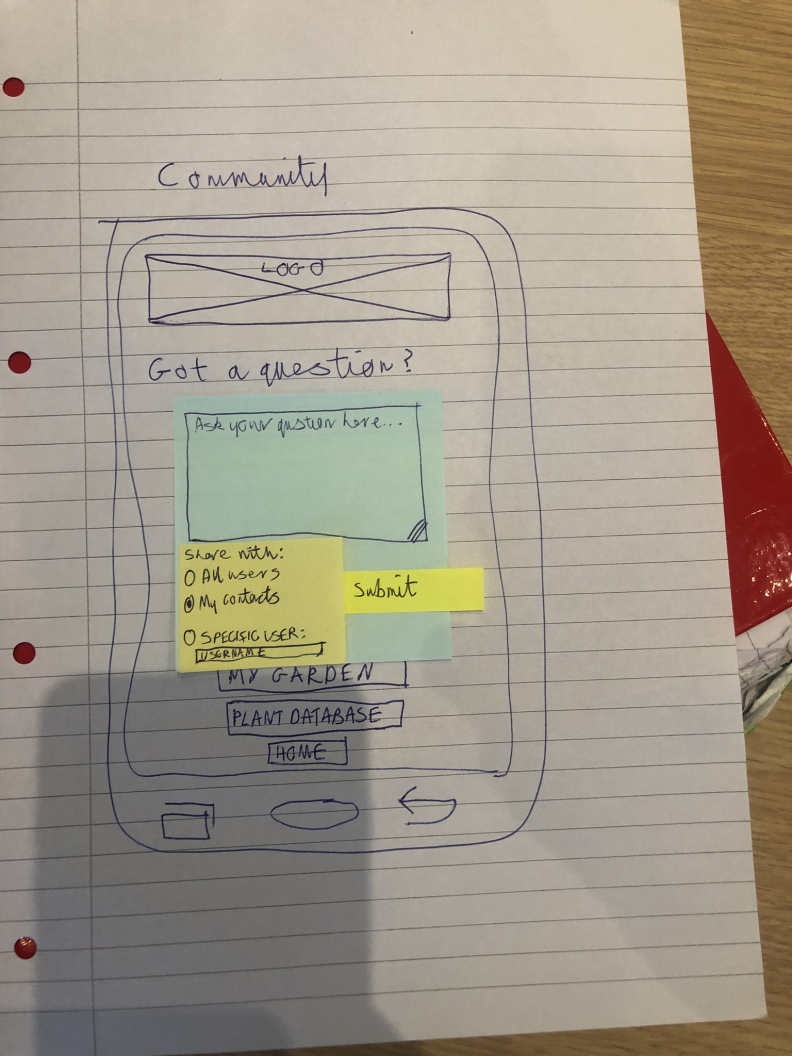 Community
LOGO
Got a question?
Ask your qustion here...
Share with:
All users
My contacts
Submit
SPECIFIC USER:
USERNAME
MY GARDEN
PLANT DATABASE
HOME